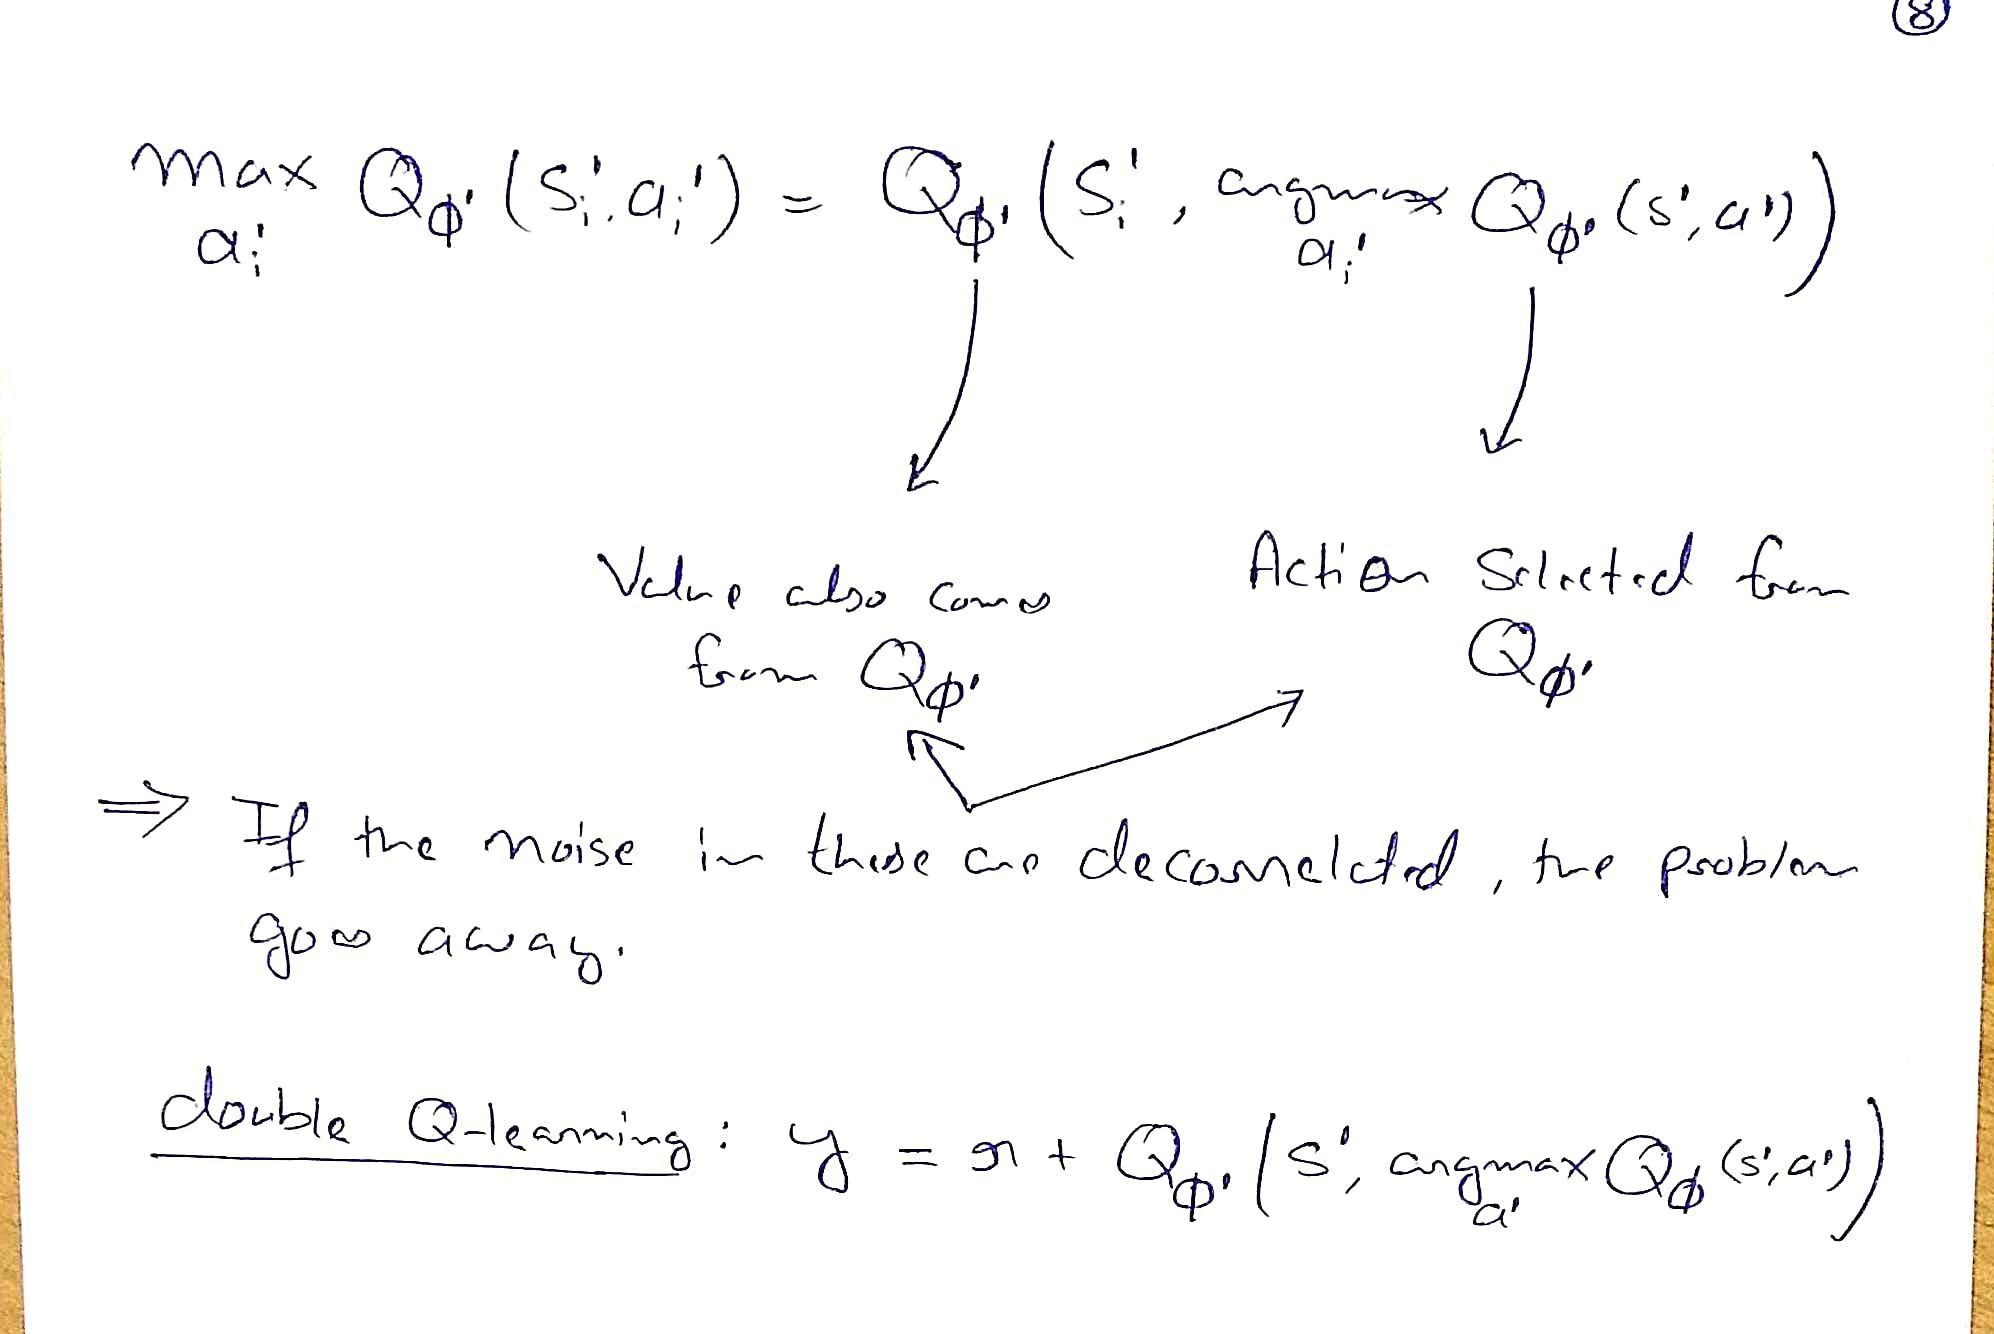 ⑧
max Q_ϕ' (s_i', a_i') = Q_ϕ' (s_i', argmax Q_ϕ' (s', a'))
a_i' a_i'
Value also comes
from Q_ϕ'
Action Selected from
Q_ϕ'
⇒ If the noise in these are decorrelated, the problem
goes away.
double Q-learning: y = r + Q_ϕ' (s', argmax Q_ϕ (s', a'))
a'